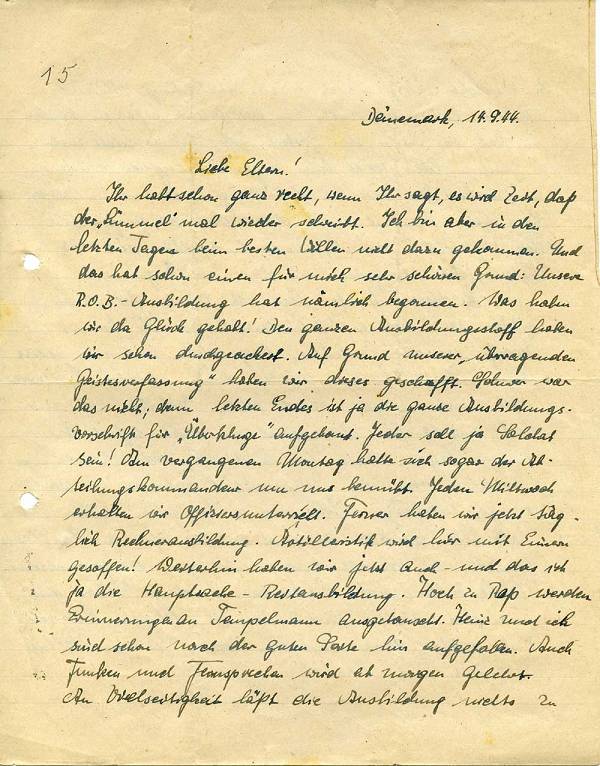 15
Dänemark, 14.9.44.
Liebe Eltern!
Ihr habt schon ganz recht, wenn Ihr sagt, es wird Zeit, daß
der „Lümmel" mal wieder schreibt. Ich bin aber in den
letzten Tagen beim besten Willen nicht dazu gekommen. Und
das hat schon einen für mich sehr schönen Grund: Unsere
R.O.B.-Ausbildung hat nämlich begonnen. Was haben
wir da Glück gehabt! Den ganzen Ausbildungsstoff haben
wir schon durchgeackert. Auf Grund unserer „überragenden
Geistesverfassung" haben wir dieses geschafft. Schwer war
das nicht; denn letzten Endes ist ja die ganze Ausbildungs-
vorschrift für „Überkluge" aufgebaut. Jeder soll ja Soldat
sein! Am vergangenen Montag hatte sich sogar der Ab-
teilungskommandeur um uns bemüht. Jeden Mittwoch
erhalten wir Offiziersunterricht. Ferner haben wir jetzt täg-
lich Rechnerausbildung. Artilleristik wird hier mit Eimern
gesoffen! Weiterhin haben wir jetzt auch - und das ist
ja die Hauptsache - Reitausbildung. Hoch zu Roß werden
Erinnerungen an Tempelmann ausgetauscht. Heinz und ich
sind schon nach der guten Seite hin aufgefallen. Auch
Funken und Fernsprechen wird ab morgen gelehrt.
An Vielseitigkeit läßt die Ausbildung nichts zu